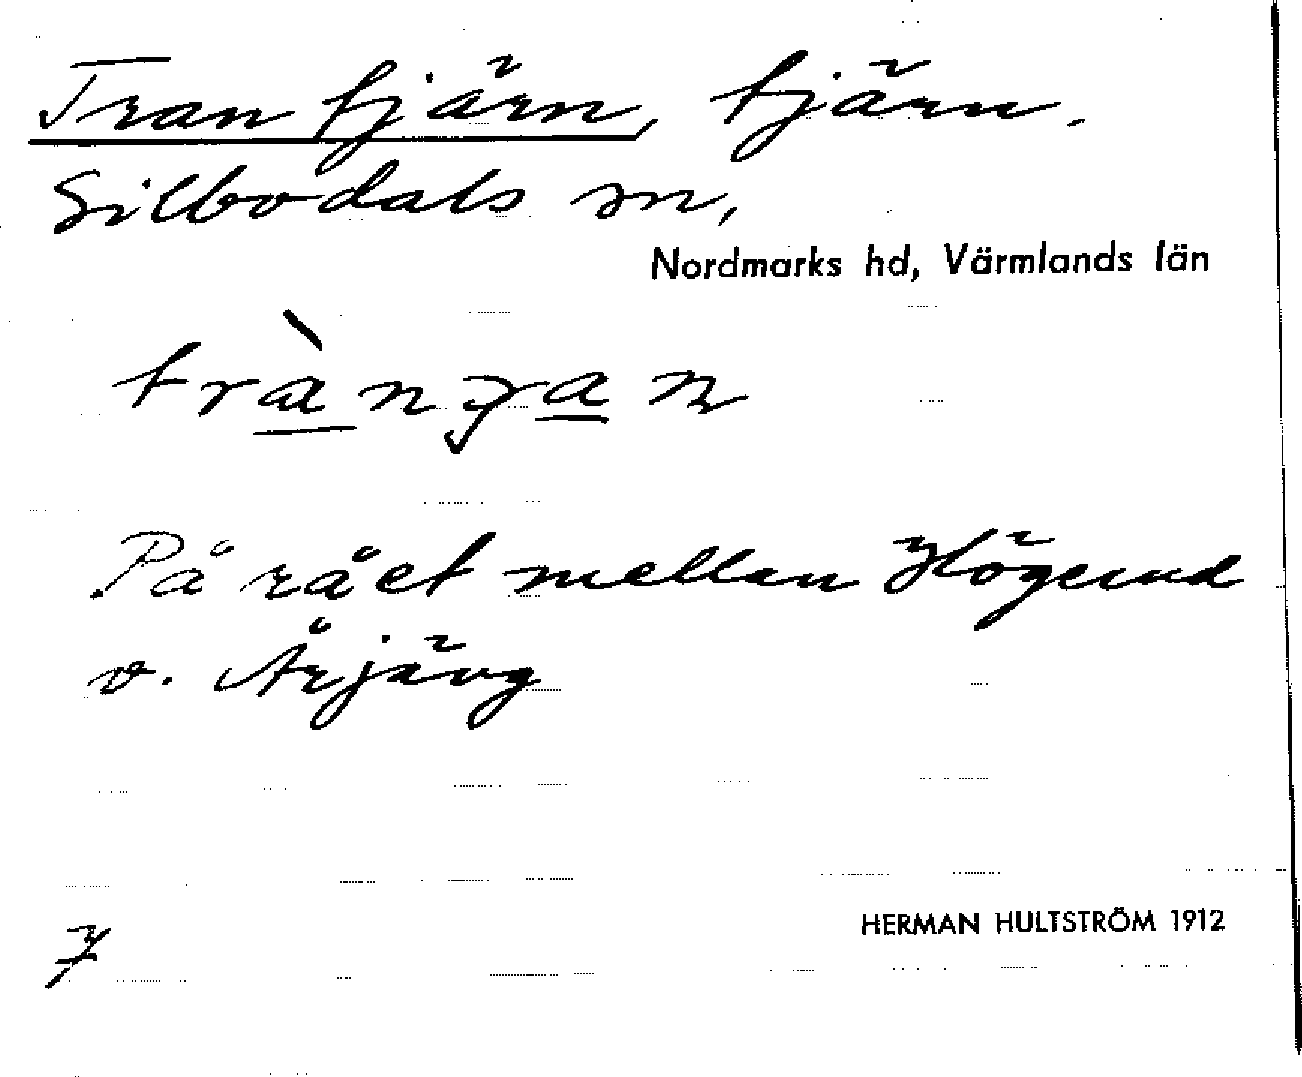 Trantjärn, tjärn.
Silbodals sn,
Nordmarks hd, Värmlands län
På rået mellan Högerud
o. Årjäng
HERMAN HULTSTRÖM 1912
7